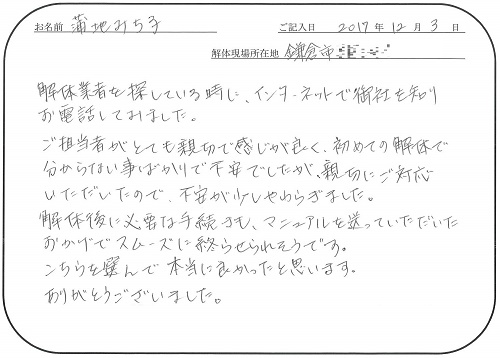 お名前 蒲地みち子 ご記入日 2017年 12月 3日
解体現場所在地 鎌倉市
解体業者を探している時に、インターネットで御社を知り
お電話しておりました。
ご担当者がとても親切で感じが良く、初めての解体で
分からない事ばかりで不安でしたが、親切にご対応
いただいたので、不安が少しやわらぎました。
解体後に必要な手続きも、マニュアルを送っていただいた
おかげでスムーズに終らせられそうです。
こちらを選んで本当に良かったと思います。
ありがとうございました。